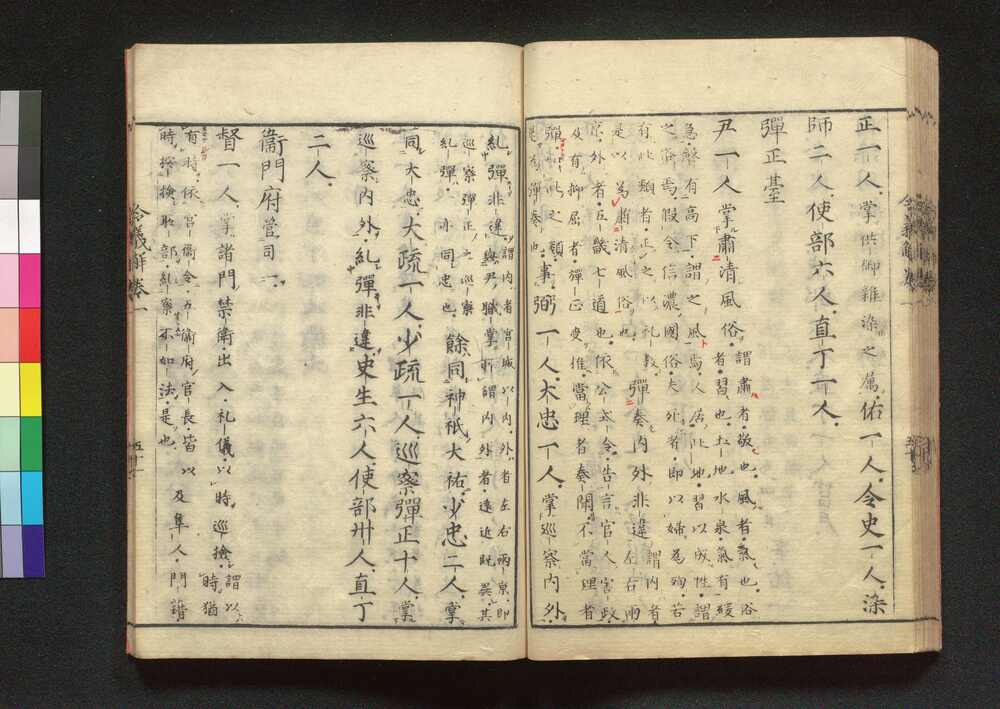 正一人掌供御雜染之属佑一人令史一人染
師二人使部六人直丁一人
彈正臺
尹一人掌肅清風俗謂肅者敬也風者氣也俗
者習也土地水泉氣有緩
急聲有高下謂之風焉人居此地習以成性謂
之俗焉假令信濃國俗夫死者即以婦為殉若
有此類者正之以礼教
是以為肅清風俗也彈奏内外非違謂内者
左右兩
京外者五畿七道也依公式令告言官人害政
及有抑屈者彈正受推當理者奏聞不當理者
彈之類
是為彈奏也事弼一人大忠一人掌巡察内外
糺彈非違謂内者宮城以内外者左右兩京即
與尹職掌所謂内外者遠近既異其
巡察彈正之巡察
糺彈亦同忠也餘同神祇大祐少忠二人掌
同大忠大疏一人少疏一人巡察彈正十人掌
巡察内外糺彈非違史生六人使部卅人直丁
二人
衛門府管司一
督一人掌諸門禁衛出入礼儀以時巡檢謂以
時猶
有時依宮衛令五衛府官長皆以
時按檢所部糺察不如法是也及隼人門籍
令義解卷一